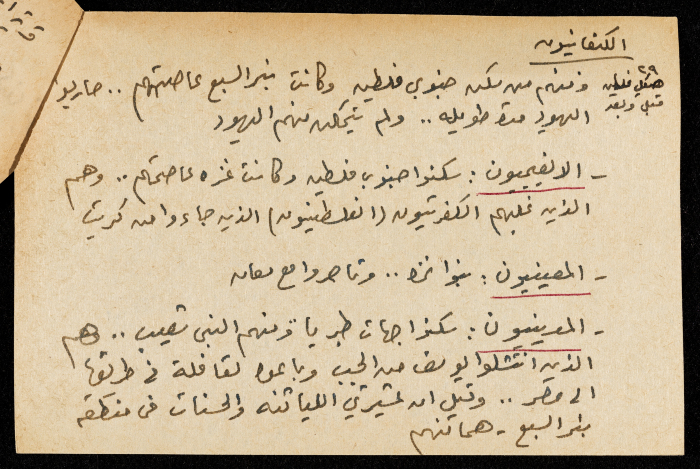 الكنعانيون
٢٩
هيكل فلسطين
قبل وبعد
ومنهم من سكن جنوبي فلسطين وكانت بئر السبع عاصمتهم .. حاربوا
اليهود مدة طويلة .. ولم يتمكن منهم اليهود
- الانفيميون : سكنوا جنوب فلسطين وكانت غزه عاصمتهم .. وهم
الذين غلبهم الكفرتيون (الفلسطينيون) الذين جاءوا من كريت
- المعينيون : بنوا غزه .. وتاجروا مع معان
- المدينيون : سكنوا جهات طبريا ومنهم النبي شعيب .. هم
الذين انتشلوا يوسف من الجب وباعوه لقافلة في طريقها
الى مصر .. وقيل ان عشيرتي اللياثنه والحسنات في منطقة
بئر السبع - هما منهم